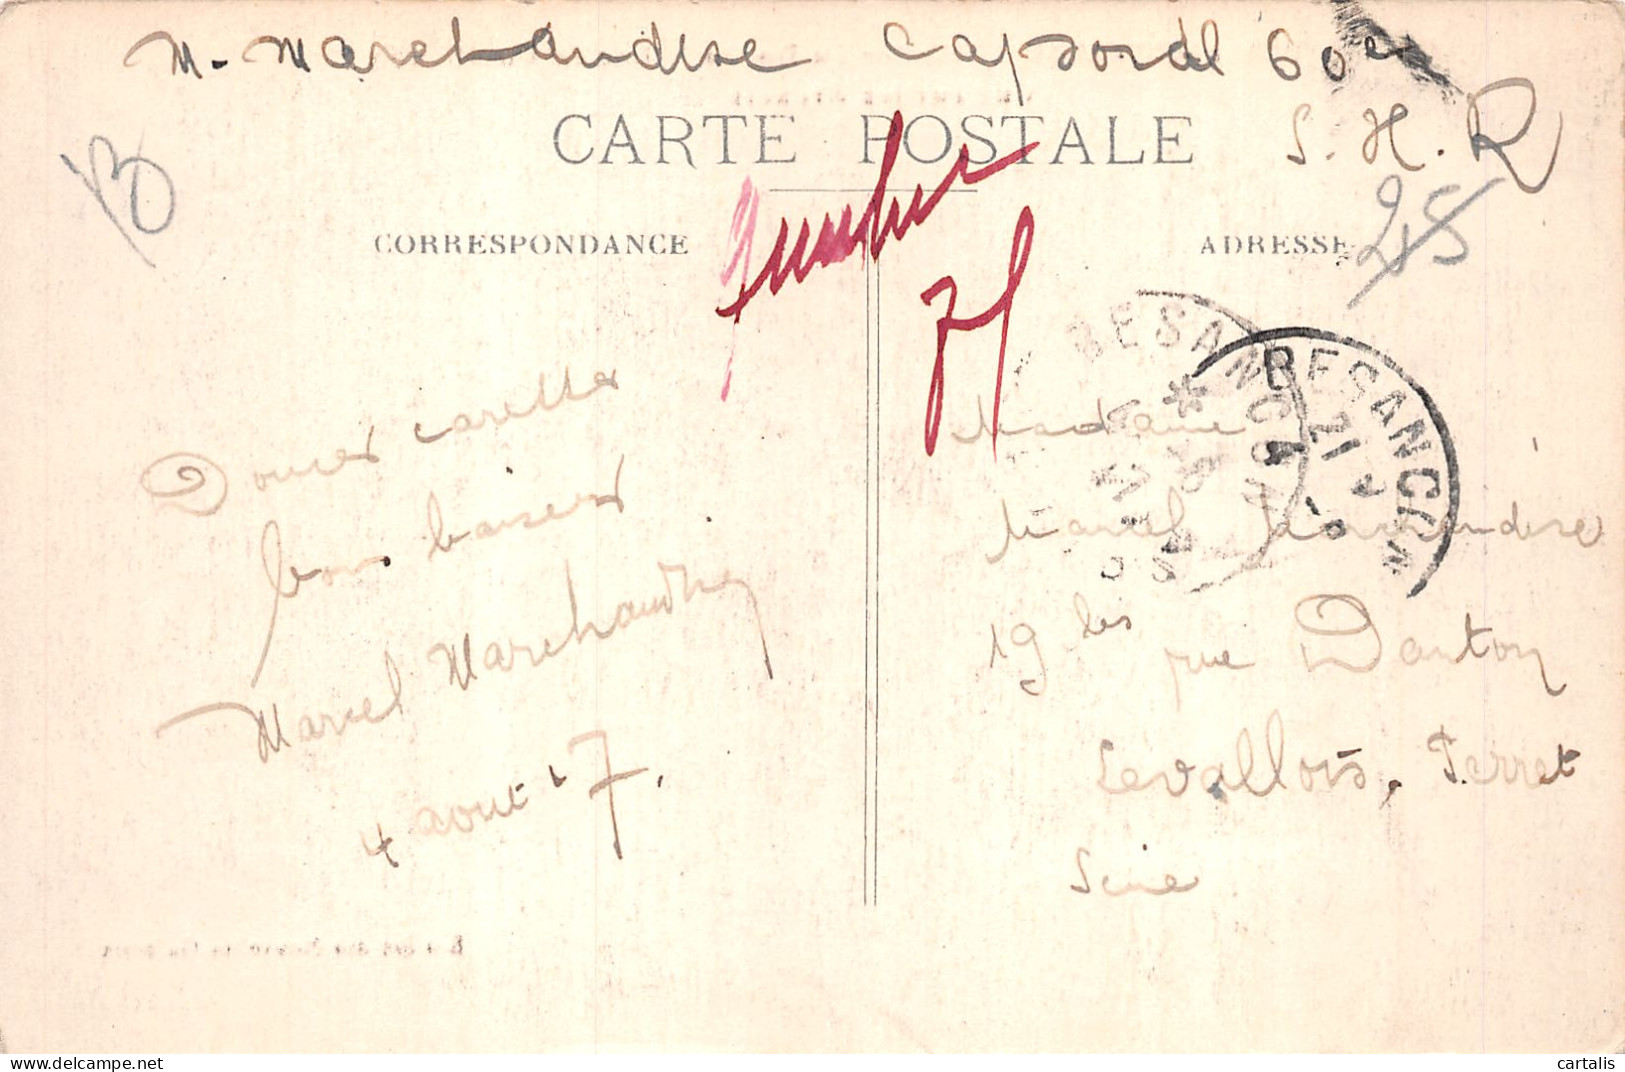 M. Marchandise Caporal 60e
S. H. R
CARTE POSTALE
B
CORRESPONDANCE
ADRESSE
BESANCON
BESANCON
Douces caresses
bons baisers
Marcel Marchandise
4 aout 17.
Madame
Marcel Marchandise
19 bis rue Danton
Levallois. Perret
Seine
cartalis